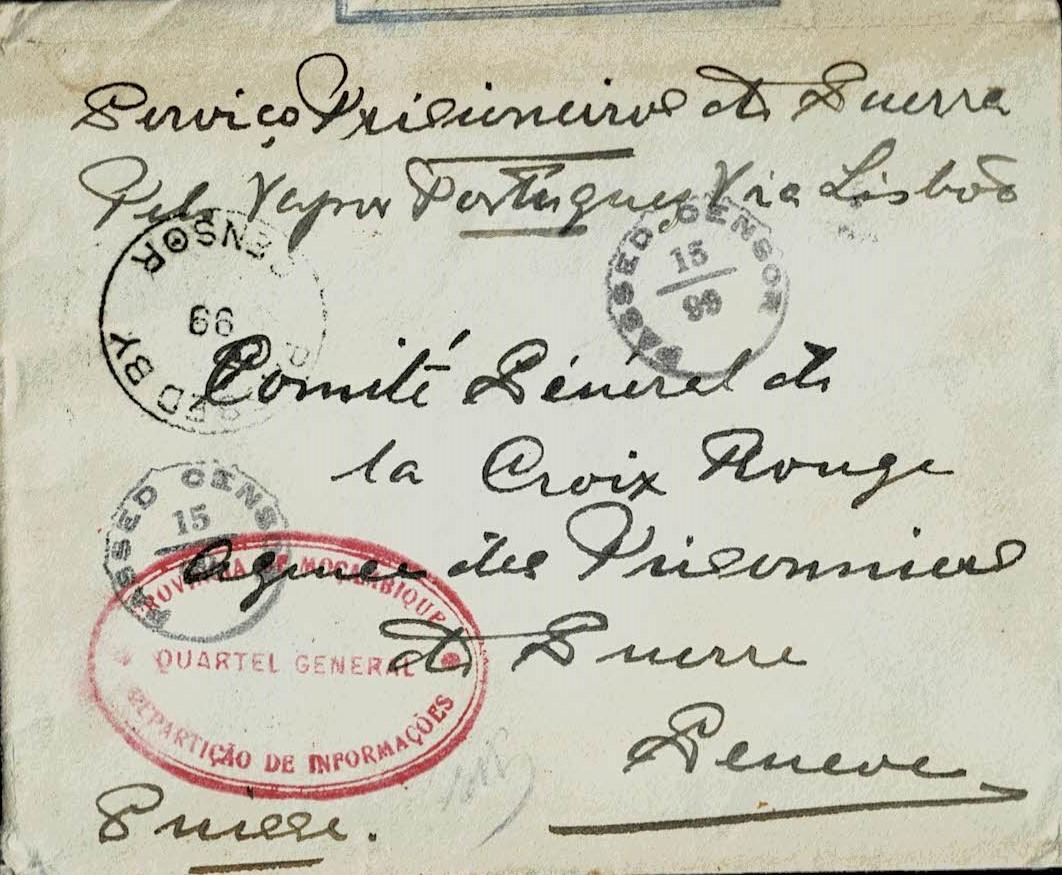 Serviço Prisioneiros de Guerra
Pelo Vapor Portuguez Via Lisbôa
PASSED BY CENSOR
99
PASSED CENSOR
15
99
Comité Général de
la Croix Rouge
PASSED CENSOR
15
Agence des Prisonniers
de Guerre
PROVINCIA DE MOÇAMBIQUE
QUARTEL GENERAL
REPARTIÇÃO DE INFORMAÇÕES
Geneve
Suisse.